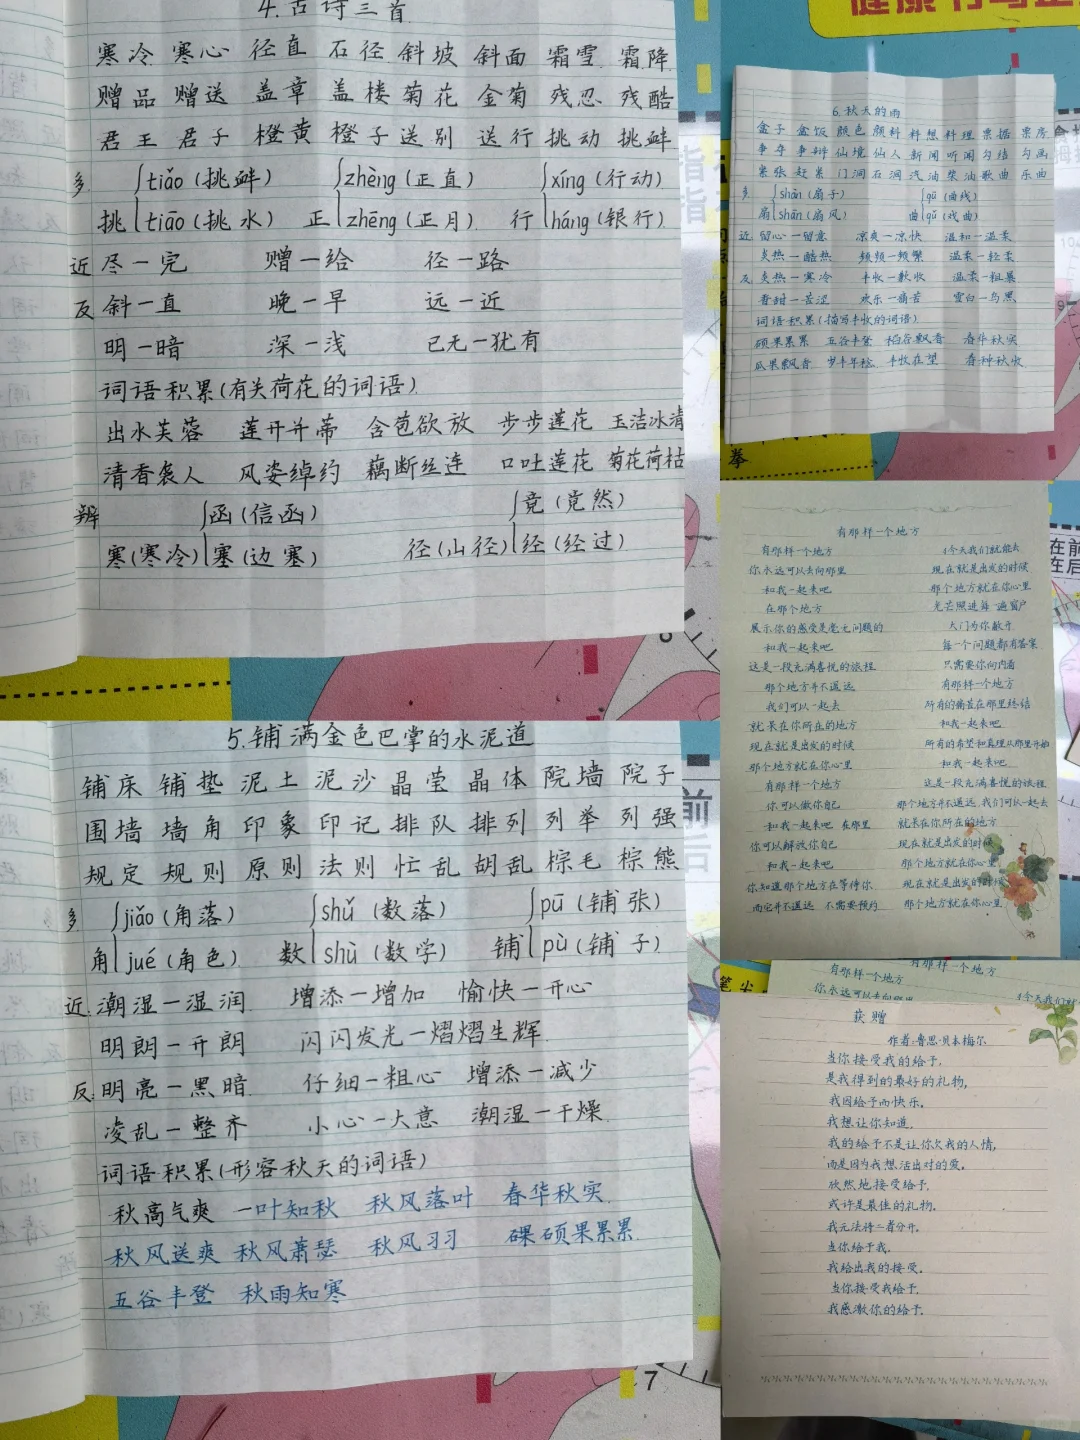 4.古诗三首
寒冷 寒心 径直 石径 斜坡 斜面 霜雪 霜降
赠品 赠送 盖章 盖楼 菊花 金菊 残忍 残酷
君王 君子 橙黄 橙子 送别 送行 挑动 挑衅
多 tiǎo(挑衅) zhèng(正直) xíng(行动)
挑 tiāo(挑水) 正 zhēng(正月) 行 háng(银行)
近 尽—完 赠—给 径—路
反 斜—直 晚—早 远—近
明—暗 深—浅 已无—犹有
词语积累(有关荷花的词语)
出水芙蓉 莲开并蒂 含苞欲放 步步莲花 玉洁冰清
清香袭人 风姿绰约 藕断丝连 口吐莲花 菊花荷枯
辨 函(信函) 竟(竟然)
寒(寒冷) 塞(边塞) 径(山径) 经(经过)
5.铺满金色巴掌的水泥道
铺床 铺垫 泥土 泥沙 晶莹 晶体 院墙 院子
围墙 墙角 印象 印记 排队 排列 列举 列强
规定 规则 原则 法则 忙乱 胡乱 棕毛 棕熊
多 jiǎo(角落) shǔ(数落) pū(铺张)
角 jué(角色) 数 shù(数学) 铺 pù(铺子)
近 潮湿—湿润 增添—增加 愉快—开心
明朗—开朗 闪闪发光—熠熠生辉
反 明亮—黑暗 仔细—粗心 增添—减少
凌乱—整齐 小心—大意 潮湿—干燥
词语积累(形容秋天的词语)
秋高气爽 一叶知秋 秋风落叶 春华秋实
秋风送爽 秋风萧瑟 秋风习习 硕果累累
五谷丰登 秋雨知寒
健康
6.秋天的雨
盒子 盒饭 颜色 颜料 料想 料理 票据 票房
争夺 争辩 仙境 仙人 新闻 听闻 勾结 勾画
紧张 赶紧 门洞 石洞 汽油 柴油 歌曲 乐曲
多 shàn(扇子) qū(曲线)
扇 shān(扇风) 曲 qǔ(戏曲)
近 留心—留意 凉爽—凉快 温和—温柔
炎热—酷热 频频—频繁 温柔—轻柔
反 炎热—寒冷 丰收—歉收 温柔—粗暴
香甜—苦涩 欢乐—痛苦 雪白—乌黑
词语积累(描写丰收的词语)
硕果累累 五谷丰登 稻谷飘香 春华秋实
瓜果飘香 岁丰年稔 丰收在望 春种秋收
有那样一个地方
有那样一个地方 今天我们就能去
你永远可以去向那里 现在就是出发的时候
和我一起来吧 那个地方就在你心里
在那个地方 光芒照进每一遍窗户
展示你的感受是毫无问题的 大门为你敞开
和我一起来吧 每一个问题都有答案
这是一段充满喜悦的旅程 只需要你向内看
那个地方并不遥远 有那样一个地方
我们可以一起去 所有的痛苦在那里终结
就长在你所在的地方 和我一起来吧
现在就是出发的时候 所有的希望和真理从那里开始
那个地方就在你心里 和我一起来吧
有那样一个地方 这是一段充满喜悦的旅程
你可以做你自己 那个地方并不遥远,我们可以一起去
和我一起来吧 在那里 就长在你所在的地方
你可以解放你自己 现在就是出发的时候
和我一起来吧 那个地方就在你心里
你知道那个地方在等待你 现在就是出发的时候
而它并不遥远 不需要预约 那个地方就在你心里
有那样一个地方 有那样一个地方
你永远可以去向那里
获赠
作者:鲁思·贝本梅尔
当你接受我的给予,
是我得到的最好的礼物,
我因给予而快乐。
我想让你知道,
我的给予不是让你欠我的人情,
而是因为我想活出对的爱。
欣然地接受给予,
或许是最佳的礼物。
我无法将二者分开。
当你给予我,
我给出我的接受。
当你接受我给予,
我感激你的给予。
前
后
7